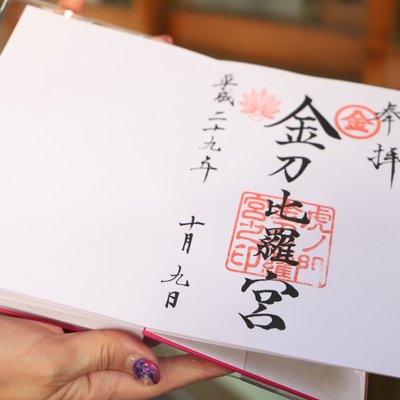 奉拝
金
金刀比羅宮
虎ノ門
金刀比羅
宮之印
平成二十九年
十月九日